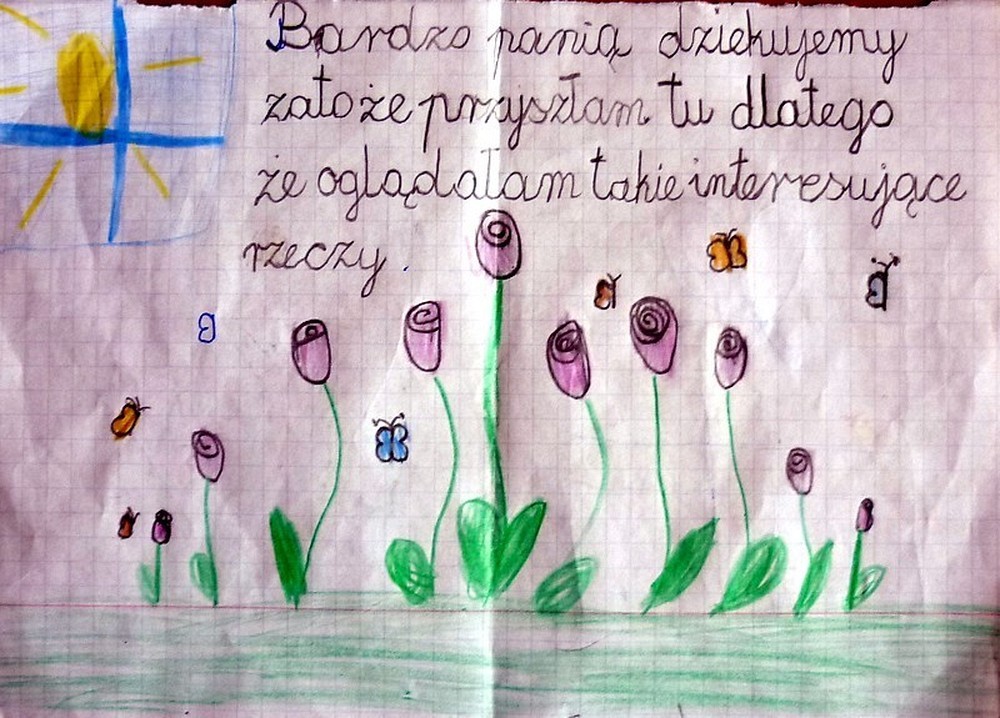 Bardzo panią dziekujemy
zato że przyszłam tu dlatego
że oglądałam takie interesujące
rzeczy.